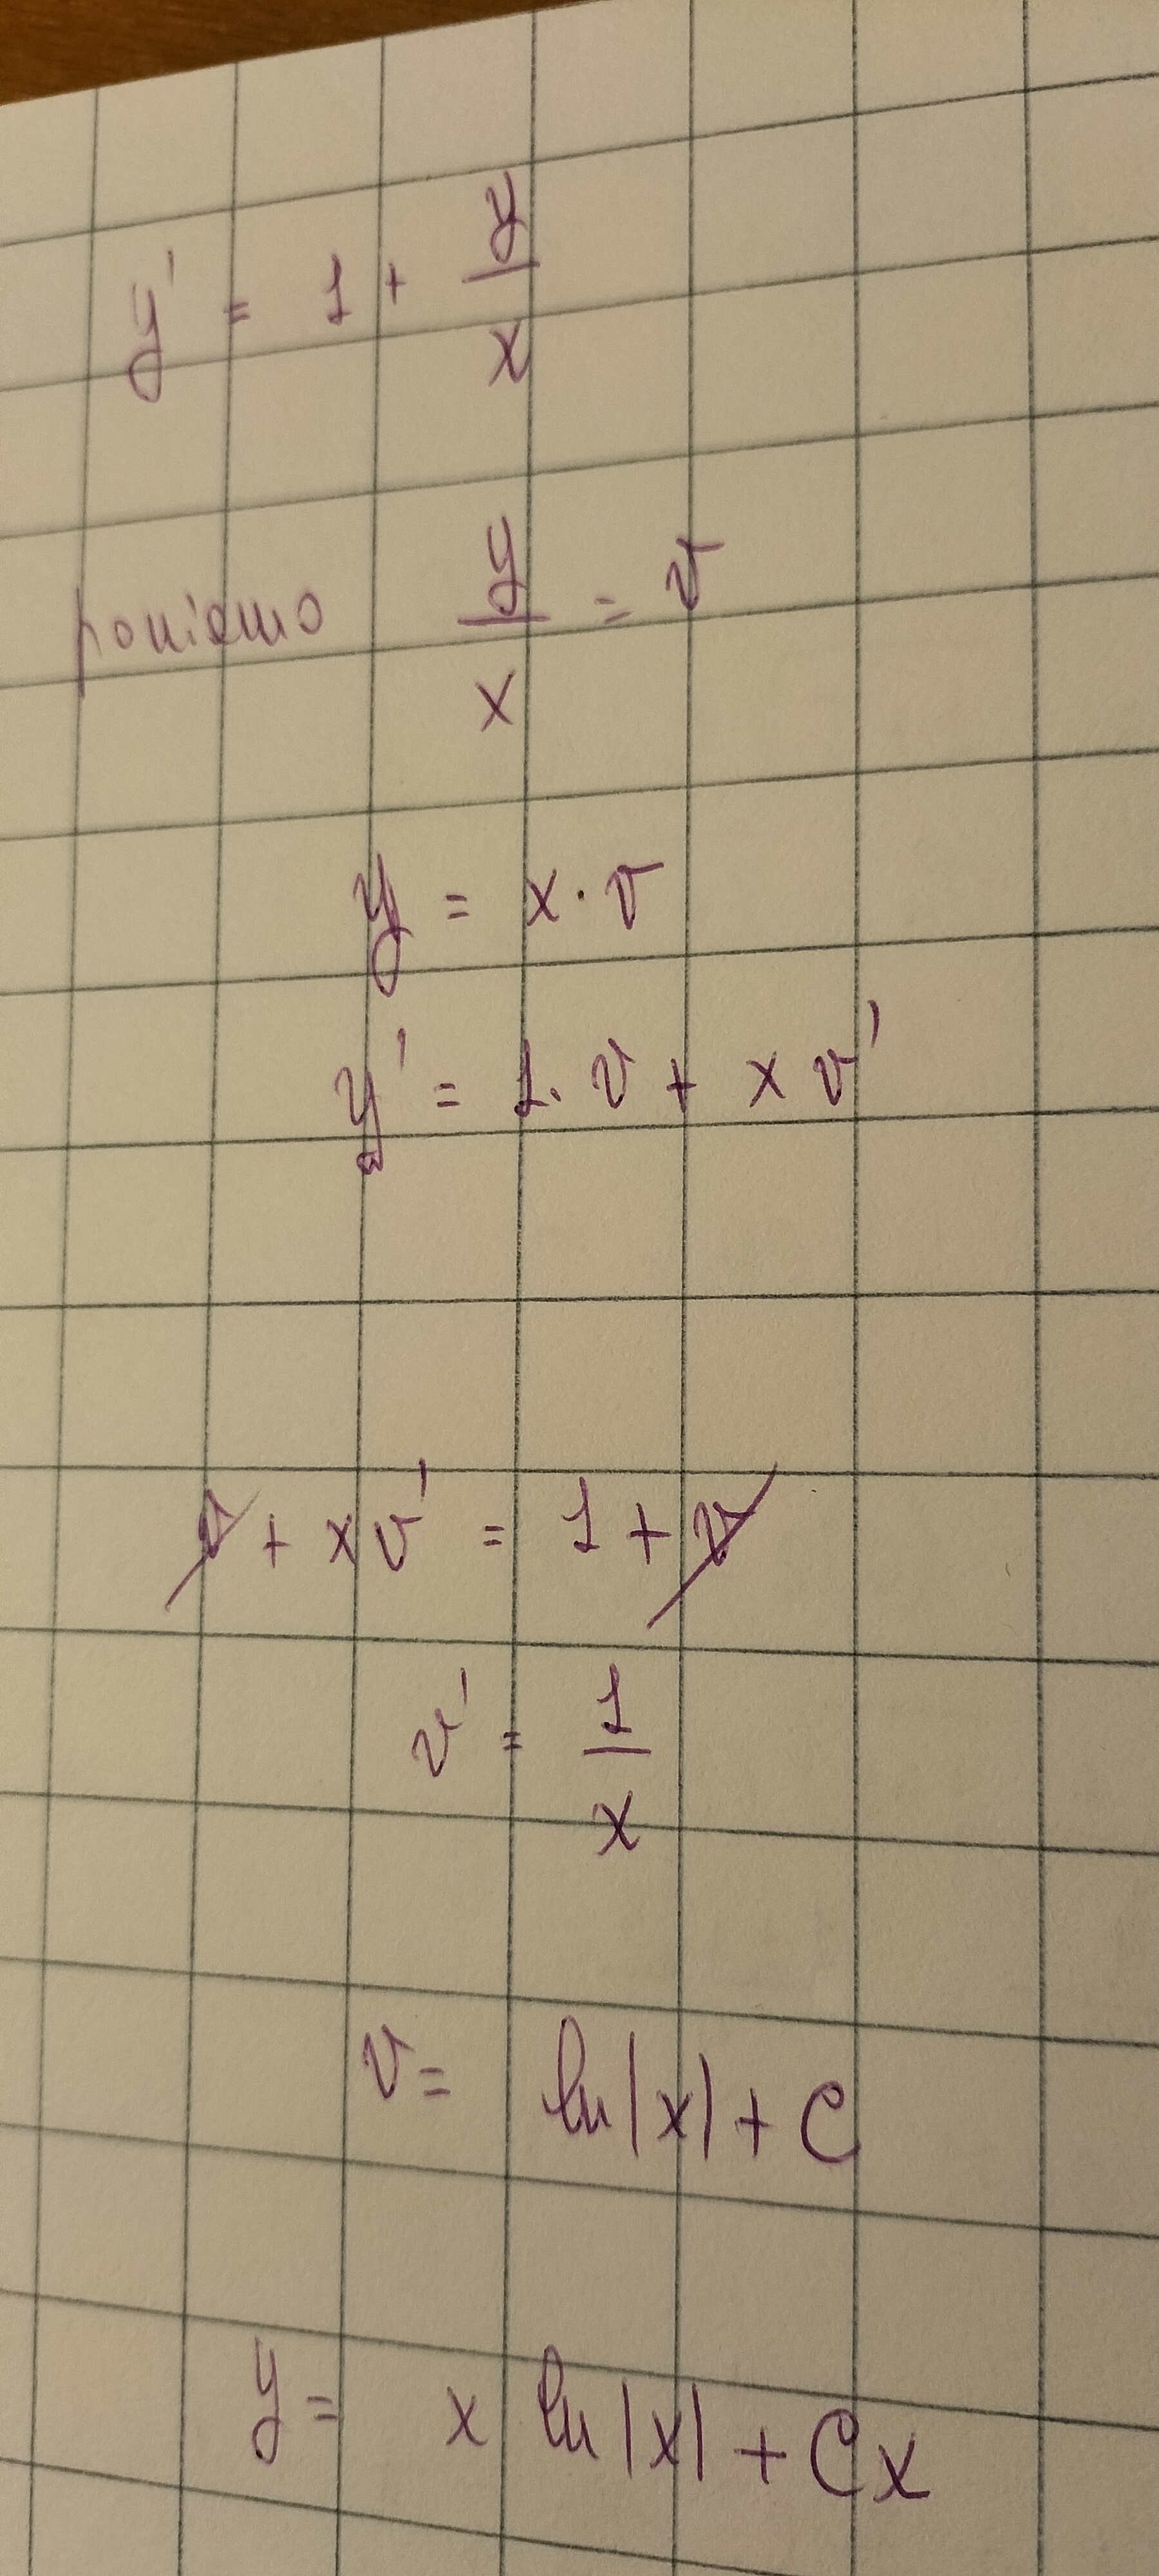 y' = 1 + y/x
poniamo y/x = v
y = x · v
y' = 1 · v + x v'
v + x v' = 1 + v
v' = 1/x
v = ln|x| + C
y = x ln|x| + Cx